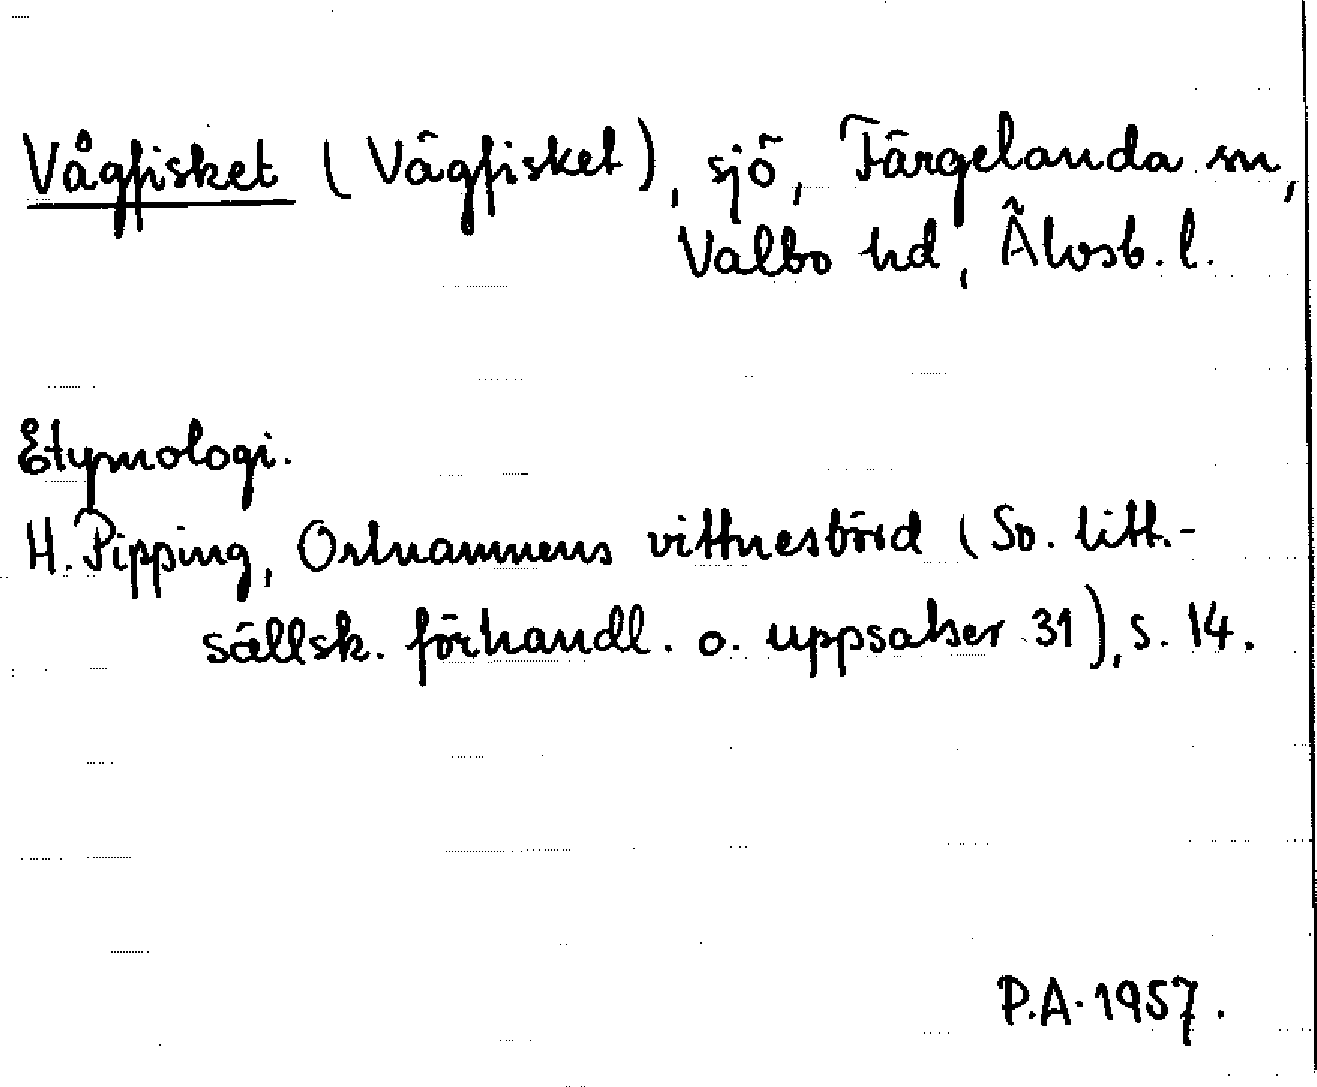 Vågfisket (Vägfisket), sjö, Färgelanda sn,
Valbo hd, Älvsb. l.
Etymologi.
H. Pipping, Ortnamnens vittnesbörd (Sv. litt.-
sällsk. förhandl. o. uppsatser 31), s. 14.
P.A. 1957.